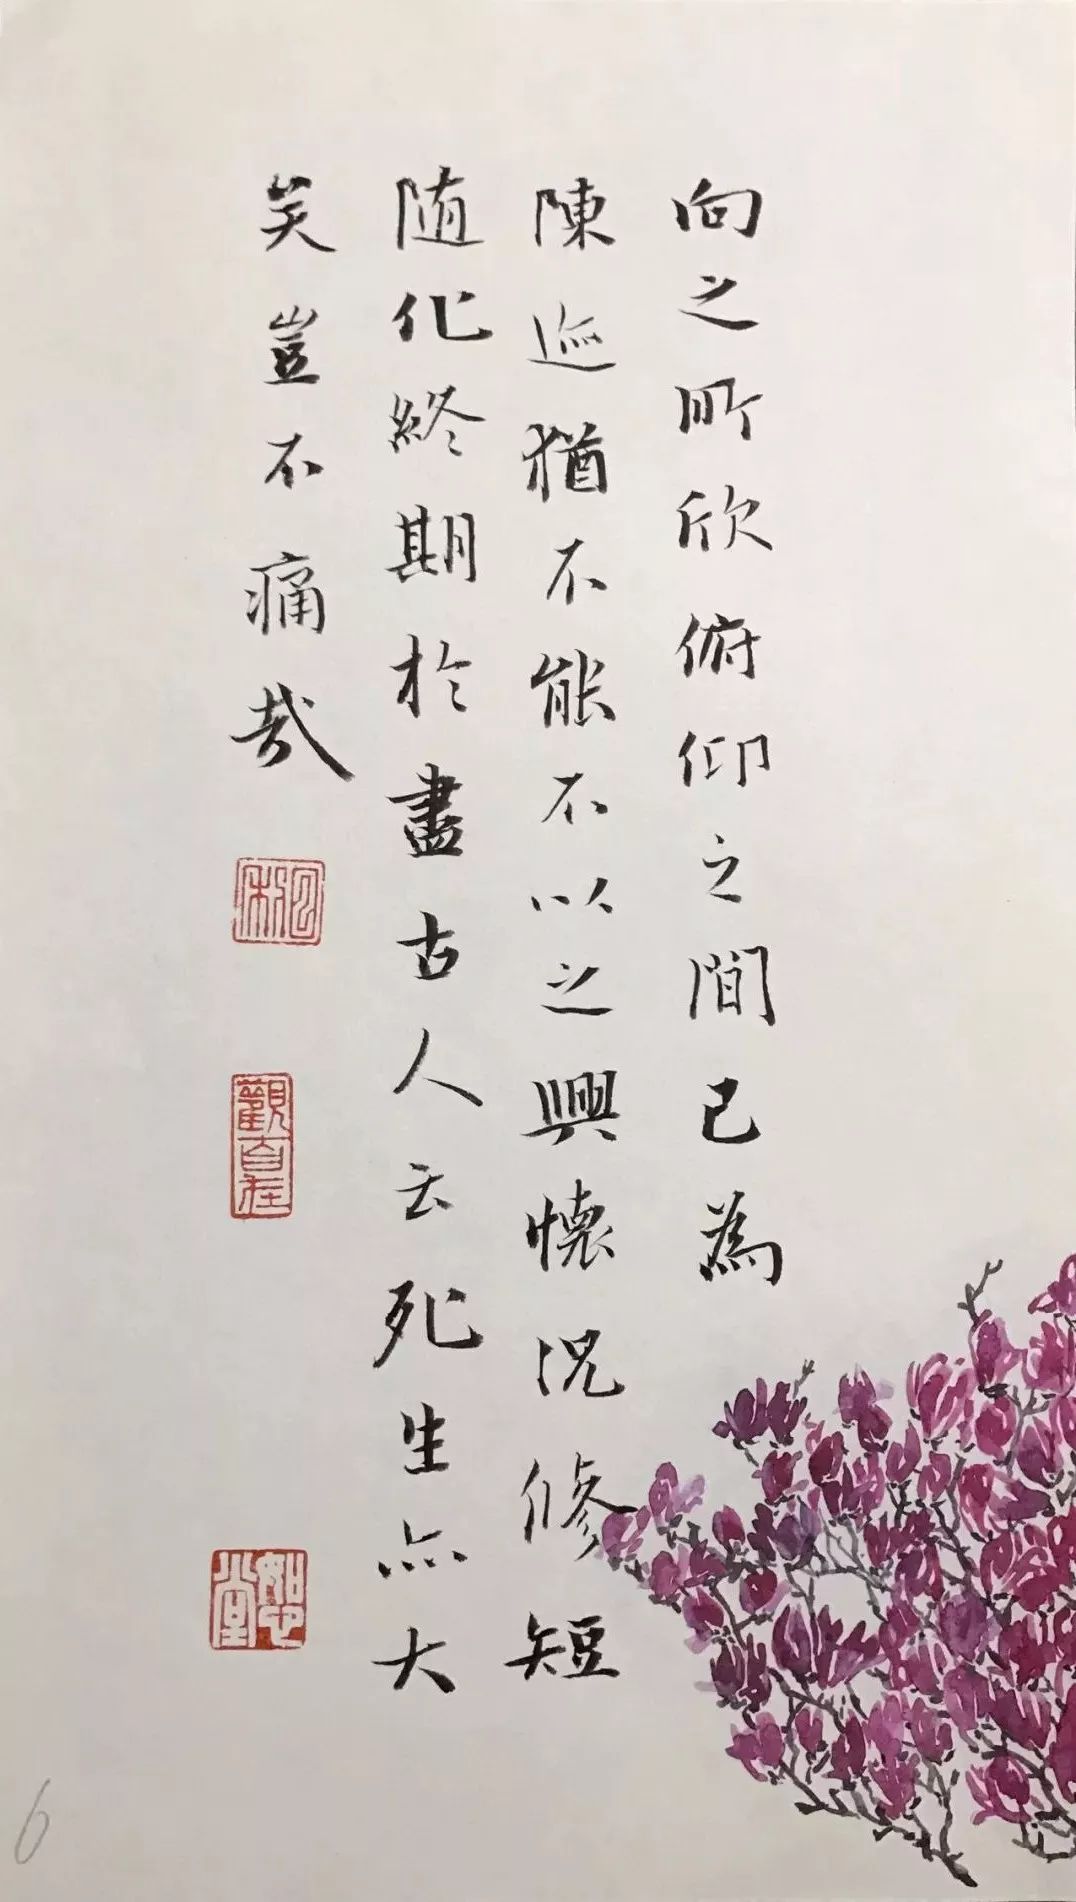 向之所欣俯仰之間已為
陳迹猶不能不以之興懷況修短
随化終期於盡古人云死生亦大
矣豈不痛哉
觀自在
恕堂
6